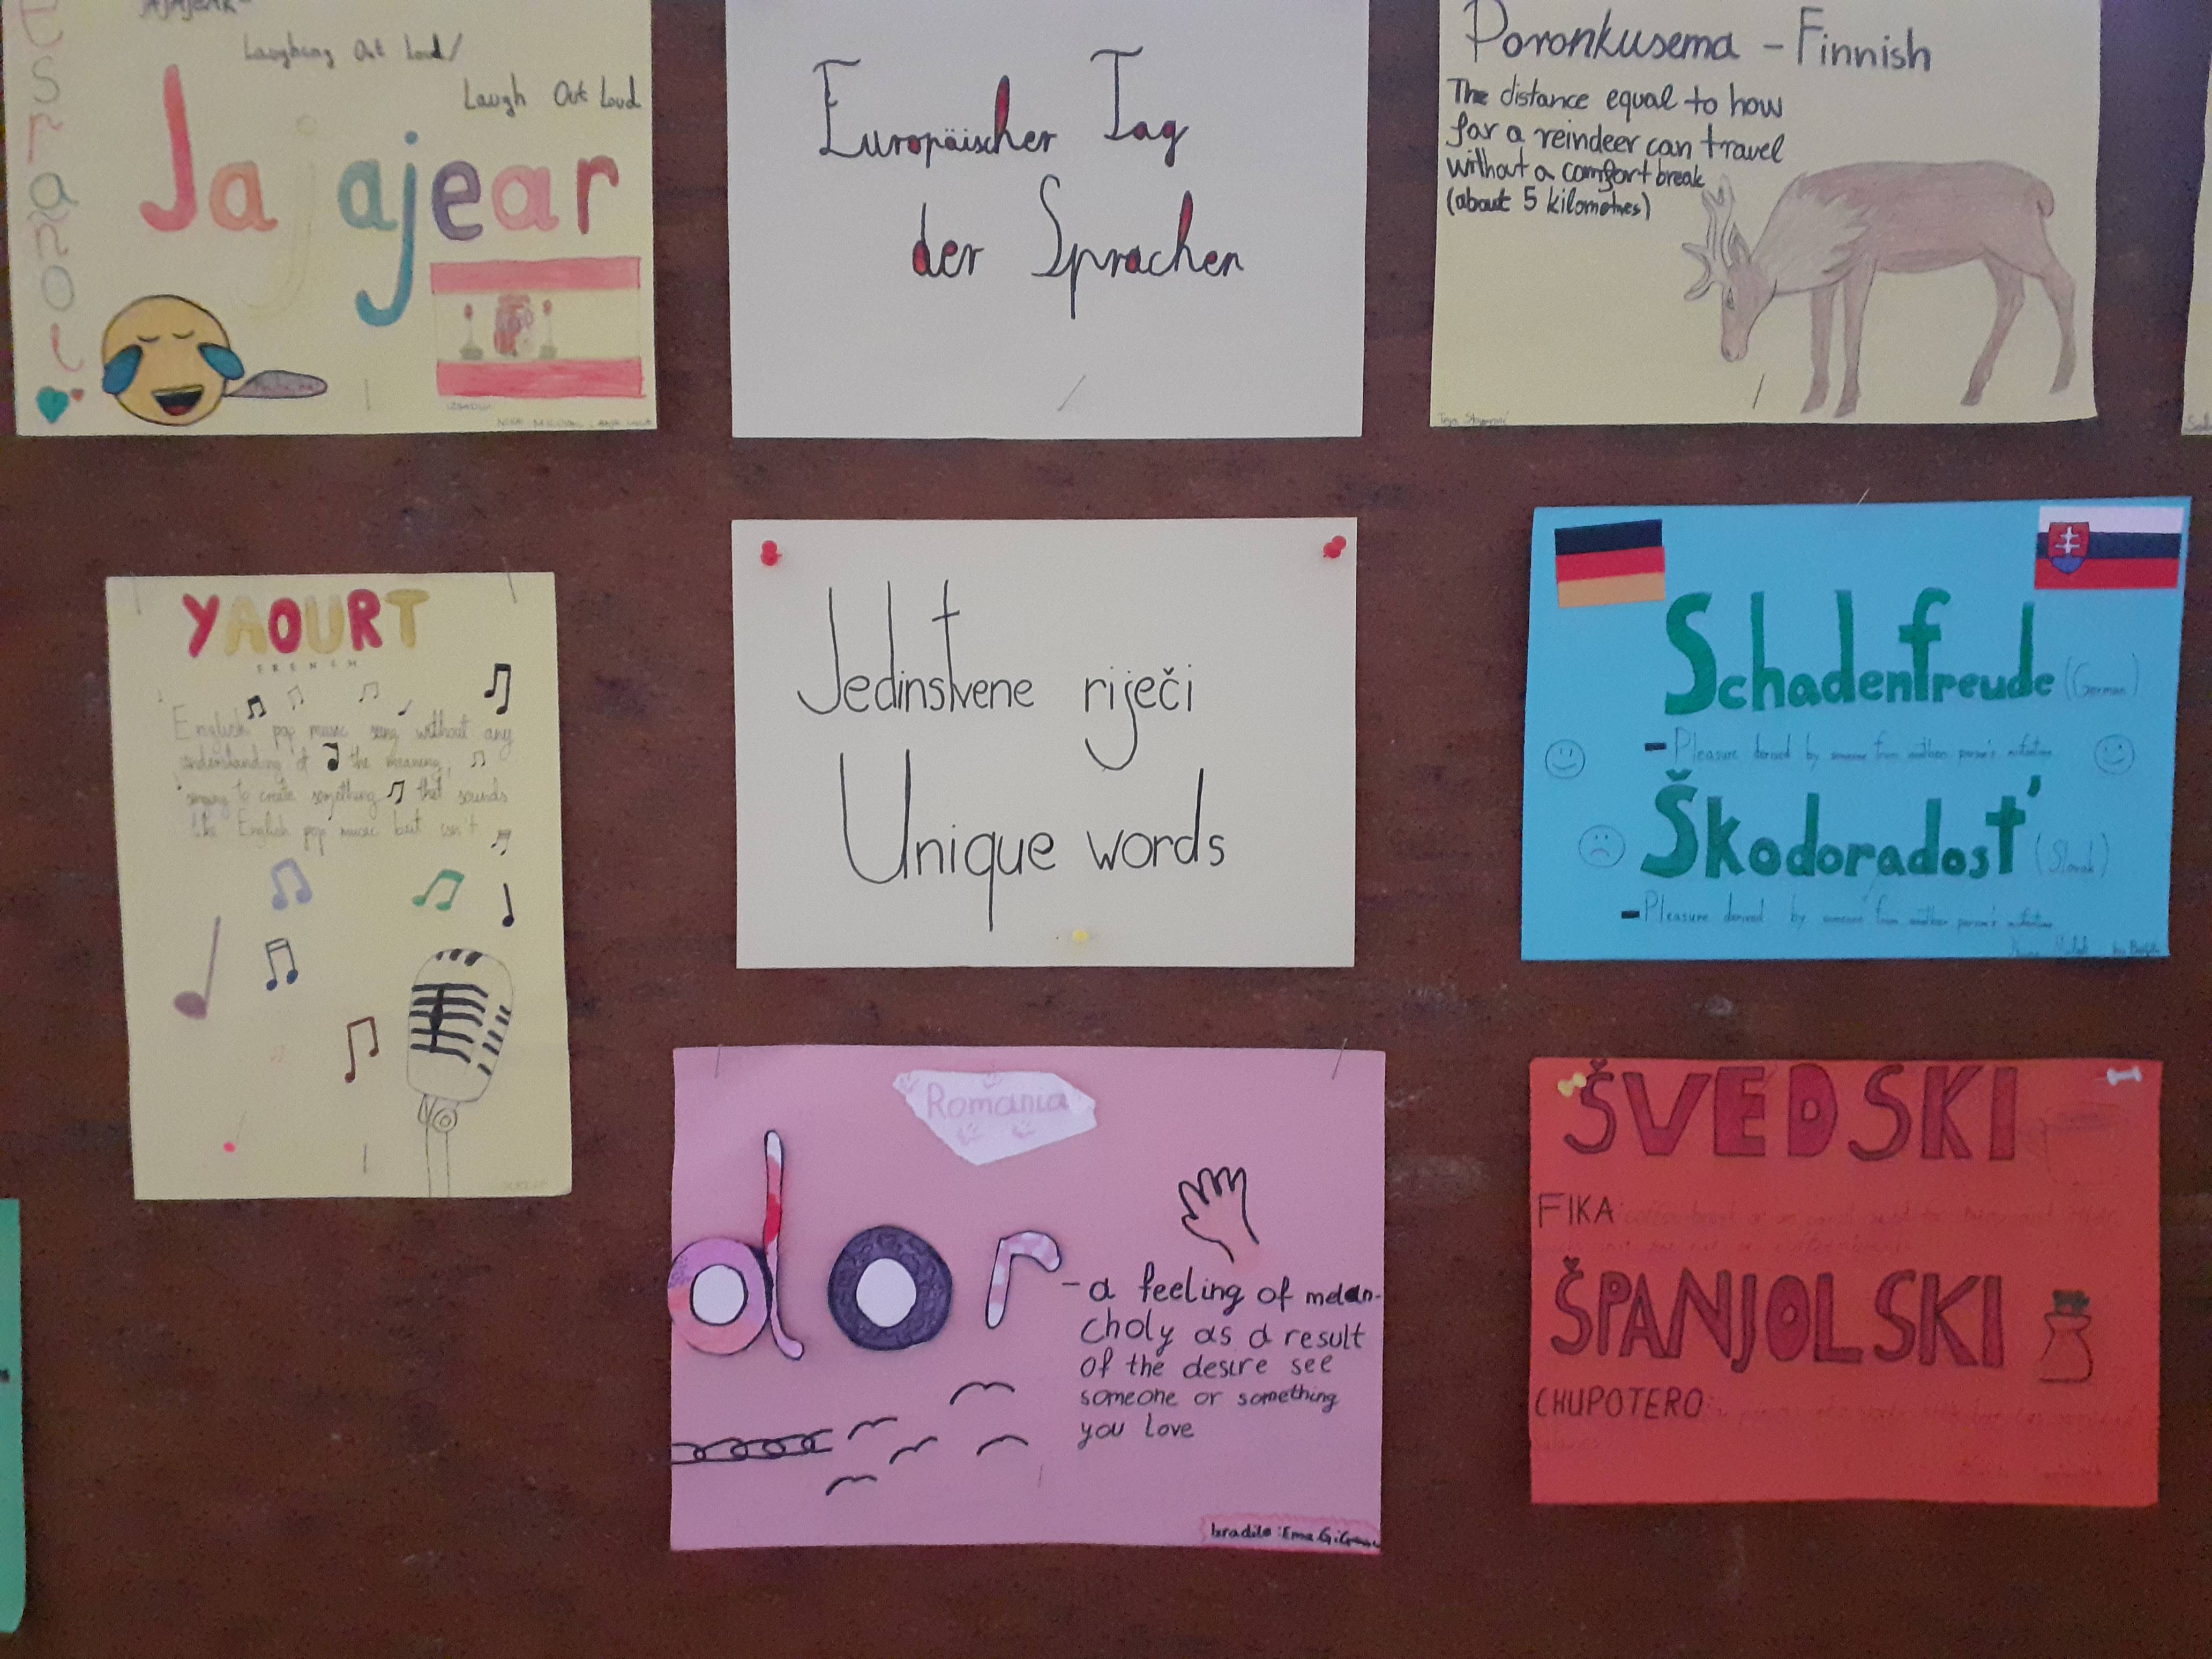 Español
Laughing Out Loud/
Laugh Out Loud
Jajajear
Europäischer Tag
der Sprachen
Poronkusema - Finnish
The distance equal to how
far a reindeer can travel
without a comfort break
(about 5 kilometres)
YAOURT
FRENCH
English pop music sung without any
understanding of the meaning,
singing to create something that sounds
like English pop music but isn't
Jedinstvene riječi
Unique words
Schadenfreude (German)
- Pleasure derived by someone from another person's misfortune
Škodoradosť (Slovak)
- Pleasure derived by someone from another person's misfortune
Romania
dor
- a feeling of melan-
choly as a result
of the desire see
someone or something
you love
Izradila: Ema G.
ŠVEDSKI
FIKA
ŠPANJOLSKI
CHUPOTERO